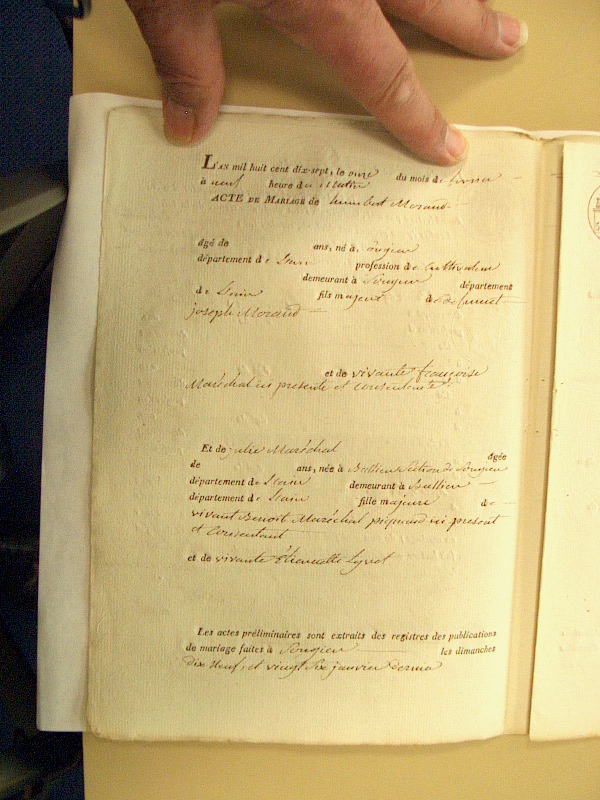 L'AN mil huit cent dix-sept, le onze du mois de fevrier
à neuf heure du matin
ACTE DE MARIAGE de humbert Morand
âgé de ans, né à Songieu
département de L'ain profession de Cultivateur
demeurant à Songieu département
de L'ain fils majeur de defunct
joseph Morand
et de vivante françoise
Maréchal ici presente et Consentante
Et de julie Maréchal âgée
de ans, née à Bassieu Section de Songieu
département de L'ain demeurant à
département de L'ain fille majeure de
vivant Benoit Maréchal ici present
et Consentant
et de vivante Étiennette
Les actes préliminaires sont extraits des registres des publications
de mariage faites à Songieu les dimanches
dix Neuf, et vingt Six janvier dernier